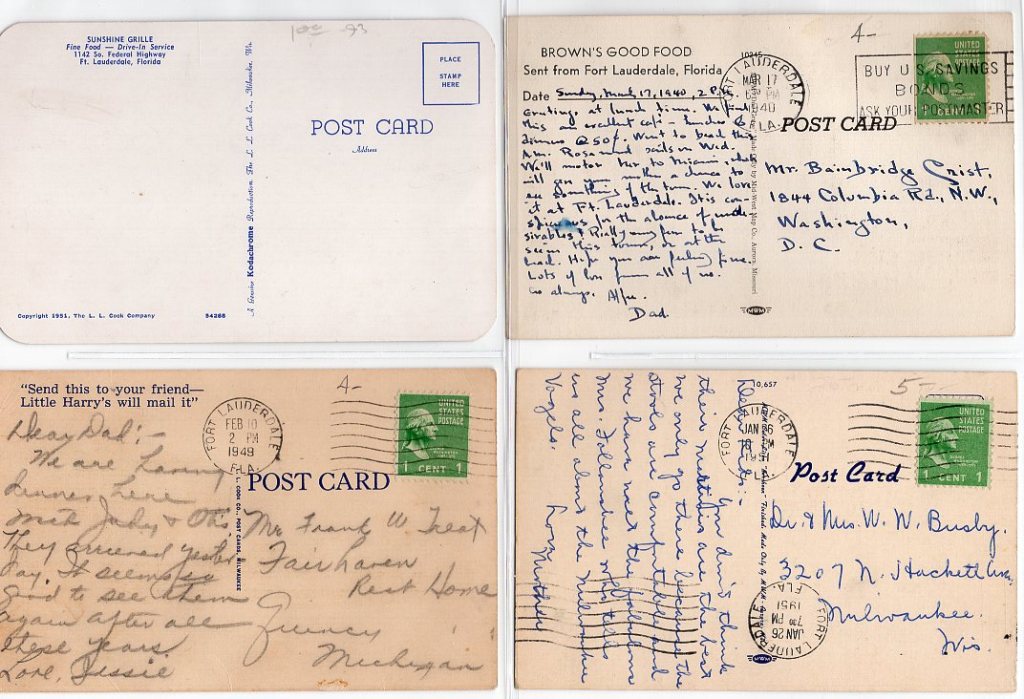 SUNSHINE GRILLE
Fine Food — Drive-In Service
1142 So. Federal Highway
Ft. Lauderdale, Florida
PLACE
STAMP
HERE
POST CARD
Address
A Genuine Kodachrome Reproduction The L. L. Cook Co., Milwaukee, Wis.
Copyright 1951, The L. L. Cook Company
54268
4-
BROWN'S GOOD FOOD
Sent from Fort Lauderdale, Florida
Date Sunday, March 17, 1940, 2 P.M.
Greetings at lunch time. We find
this an excellent cafe - lunches &
dinners @ 50¢. Went to beach this
A.M. Rosamund sails on Wed.
We'll motor her to Miami,
will give your mother a chance to
see something of the town. We love
it at Ft. Lauderdale. It is con-
spicuous for the absence of unde
sirables! Really
seen this town, or at the
beach. Hope you are feeling fine.
Lots of love from all of us.
As always, Aff.
Dad.
10245
FORT LAUDERDALE
MAR 17
PM
1940
FLA.
BUY U.S. SAVINGS
BONDS
ASK YOUR POSTMASTER
UNITED
STATES
POSTAGE
CENT
POST CARD
Mr. Bainbridge Crist,
1844 Columbia Rd., N.W.,
Washington,
D. C.
MWM
"Send this to your friend—
Little Harry's will mail it"
4-
FORT LAUDERDALE
FEB 10
2 PM
1949
FLA.
UNITED
STATES
POSTAGE
1 CENT 1
POST CARD
L. L. COOK CO., POST CARDS, MILWAUKEE
Dear Dad:-
We are having
dinner here
with Judy & Otis
They arrived yester
day. It seems so
good to see them
again after all
these years.
Love, Jessie
Mr Frank W Treat
Fair haven
Rest Home
Quincy
Michigan
5-
10,657
FORT LAUDERDALE
JAN 26
PM
1951
FLA.
UNITED
STATES
POSTAGE
CENT 1
Post Card
Dear Kids:-
You didn't think
this
we only go there because the
are comfortable and
we have met the
Mrs. Follansbee who tells
us all about the Milwaukee
Vogels.
Love,
Dr. & Mrs. W. W. Busby.
3207 N. Hackett Ave.
Milwaukee.
Wis.
FORT LAUDERDALE
JAN 26
7:30 PM
1951
FLA.
MWM